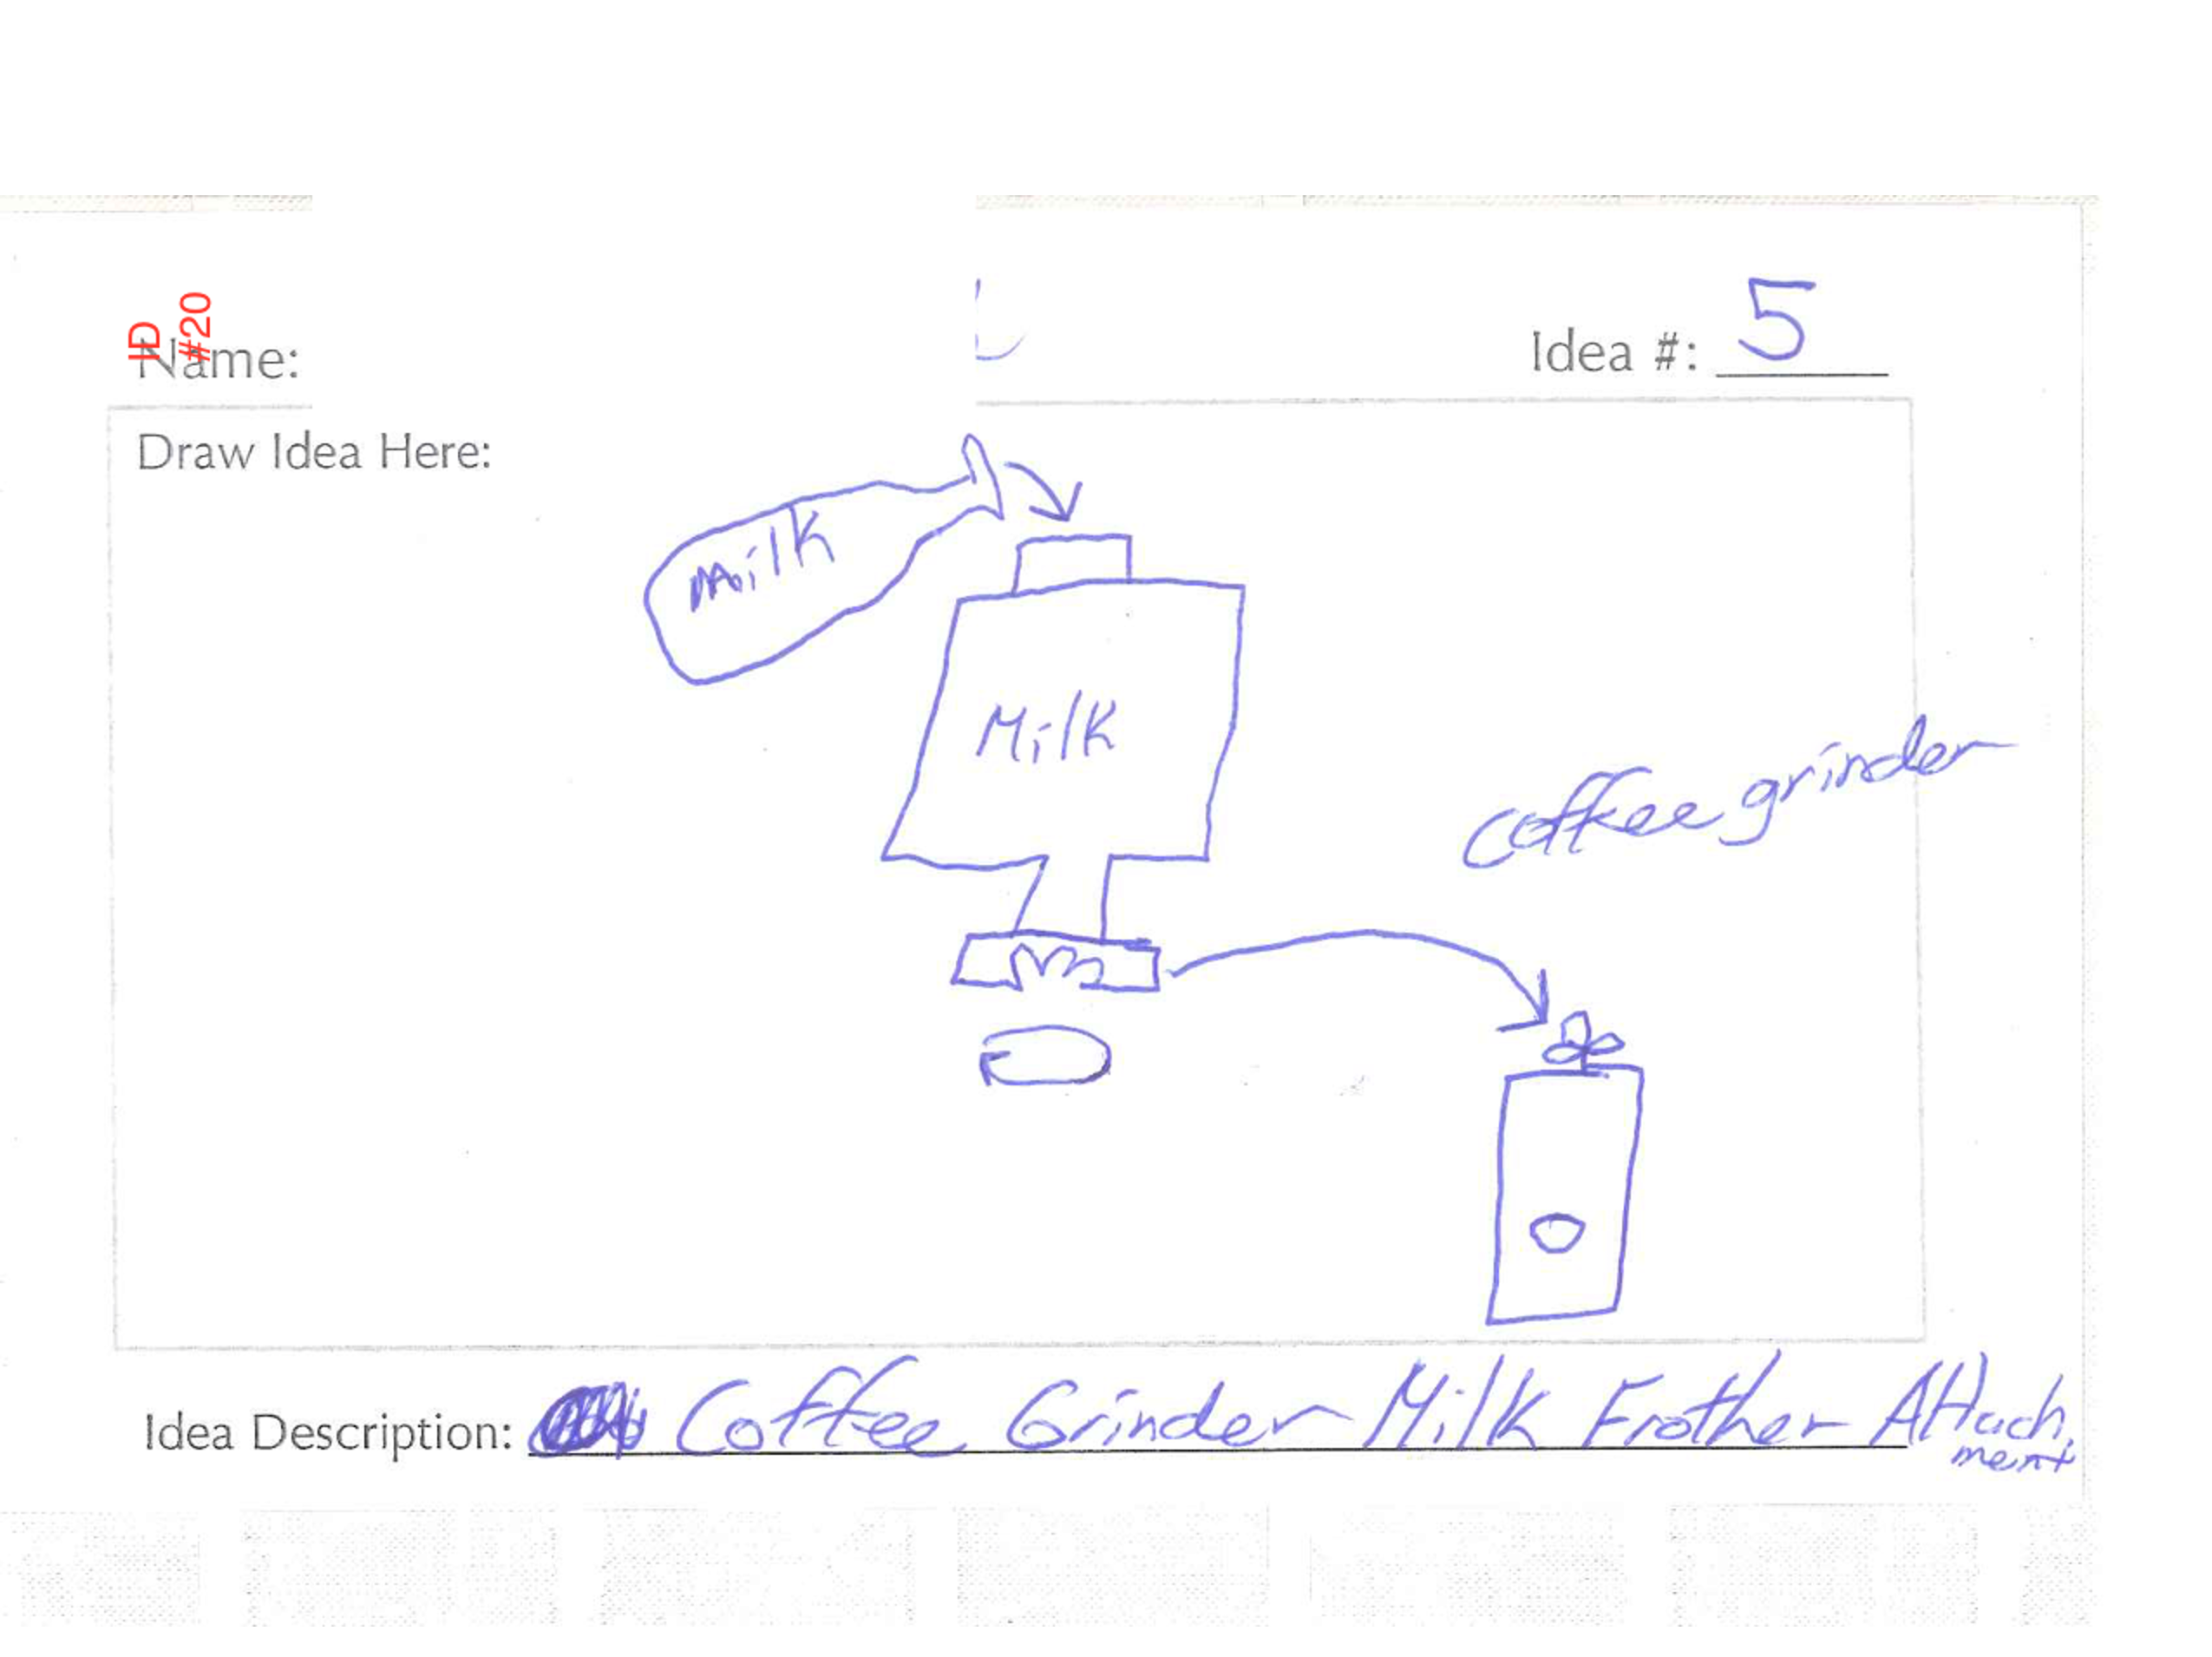 ID
#20
Name:
Idea #: 5
Draw Idea Here:
Milk
Milk
coffee grinder
Idea Description: Coffee Grinder Milk Frother Attach.
ment